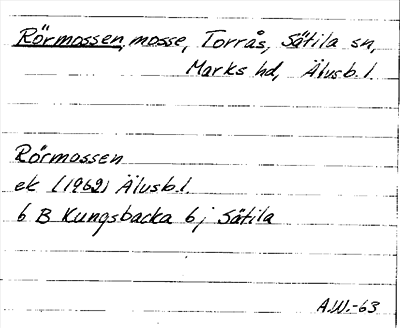 Rörmossen, mosse, Torrås, Sätila sn,
Marks hd, Älvsb. l.
Rörmossen
ek (1962) Älvsb. l.
6 B Kungsbacka 6 j Sätila
A.W.-63